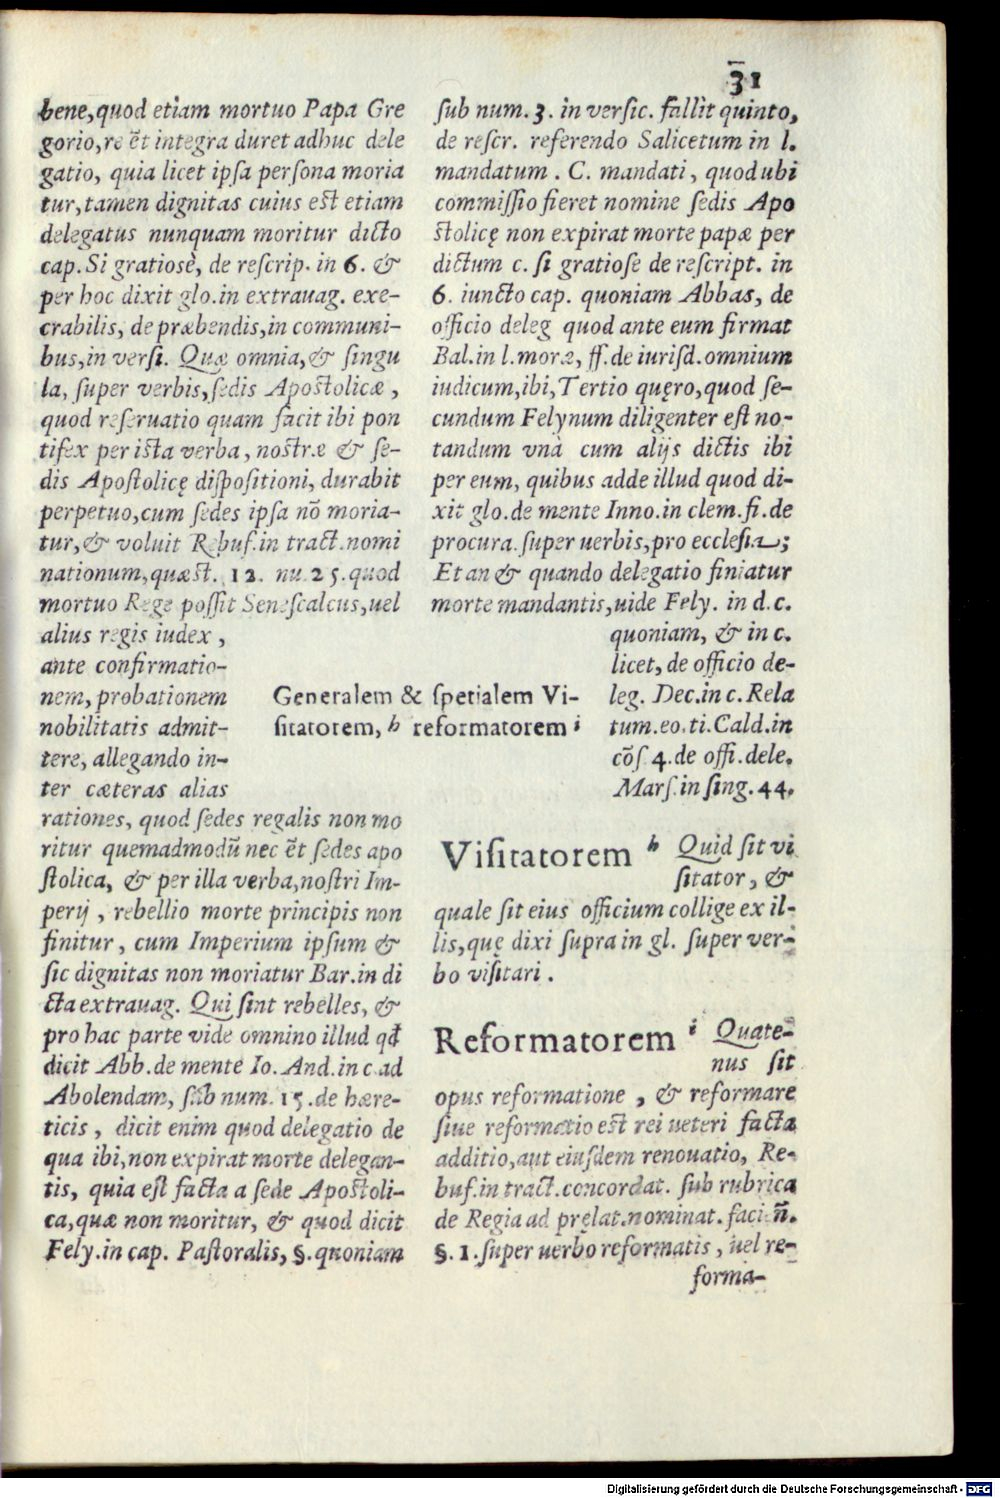 31
bene, quod etiam mortuo Papa Gre
gorio, re ēt integra duret adhuc dele
gatio, quia licet ipſa perſona moria
tur, tamen dignitas cuius eſt etiam
delegatus nunquam moritur dicto
cap. Si gratiosè, de reſcrip. in 6. &
per hoc dixit glo. in extrauag. exe-
crabilis, de præbendis, in communi-
bus, in verſi. Quæ omnia, & ſingu
la, ſuper verbis, ſedis Apoſtolicæ,
quod reſeruatio quam facit ibi pon
tifex per iſta verba, noſtræ & ſe-
dis Apoſtolicę diſpoſitioni, durabit
perpetuo, cum ſedes ipſa nō moria-
tur, & voluit Rebuf. in tract. nomi
nationum, quæſt. 12. nu. 25. quod
mortuo Rege poſſit Seneſcalcus, uel
alius regis iudex,
ante confirmatio-
nem, probationem
nobilitatis admit-
tere, allegando in-
ter cæteras alias
rationes, quod ſedes regalis non mo
ritur quemadmodū nec ēt ſedes apo
ſtolica, & per illa verba, noſtri Im-
perij, rebellio morte principis non
finitur, cum Imperium ipſum &
ſic dignitas non moriatur Bar. in di
cta extrauag. Qui ſint rebelles, &
pro hac parte vide omnino illud qđ
dicit Abb. de mente Io. And. in c. ad
Abolendam, ſub num. 15. de hære-
ticis, dicit enim quod delegatio de
qua ibi, non expirat morte delegan-
tis, quia eſt facta a ſede Apoſtoli-
ca, quæ non moritur, & quod dicit
Fely. in cap. Paſtoralis, §. quoniam
Generalem & ſpetialem Vi-
ſitatorem, h reformatorem i
ſub num. 3. in verſic. fallit quinto,
de reſcr. referendo Salicetum in l.
mandatum. C. mandati, quod ubi
commiſſio fieret nomine ſedis Apo
ſtolicę non expirat morte papæ per
dictum c. ſi gratioſe de reſcript. in
6. iuncto cap. quoniam Abbas, de
officio deleg quod ante eum firmat
Bal. in l. moræ, ff. de iuriſd. omnium
iudicum, ibi, Tertio quęro, quod ſe-
cundum Felynum diligenter eſt no-
tandum vnà cum alijs dictis ibi
per eum, quibus adde illud quod di-
xit glo. de mente Inno. in clem. fi. de
procura. ſuper uerbis, pro eccleſia;
Et an & quando delegatio finiatur
morte mandantis, uide Fely. in d. c.
quoniam, & in c.
licet, de officio de-
leg. Dec. in c. Rela
tum. eo. ti. Cald. in
cōſ. 4. de offi. dele.
Marſ. in ſing. 44.
Viſitatorem h Quid ſit vi
ſitator, &
quale ſit eius officium collige ex il-
lis, quę dixi ſupra in gl. ſuper ver-
bo viſitari.
Reformatorem i Quate-
nus ſit
opus reformatione, & reformare
ſiue reformatio eſt rei ueteri facta
additio, aut eiuſdem renouatio, Re-
buf. in tract. concordat. ſub rubrica
de Regia ad pręlat. nominat. facien̄.
§. 1. ſuper uerbo reformatis, uel re-
forma-
Digitalisierung gefördert durch die Deutsche Forschungsgemeinschaft - DFG